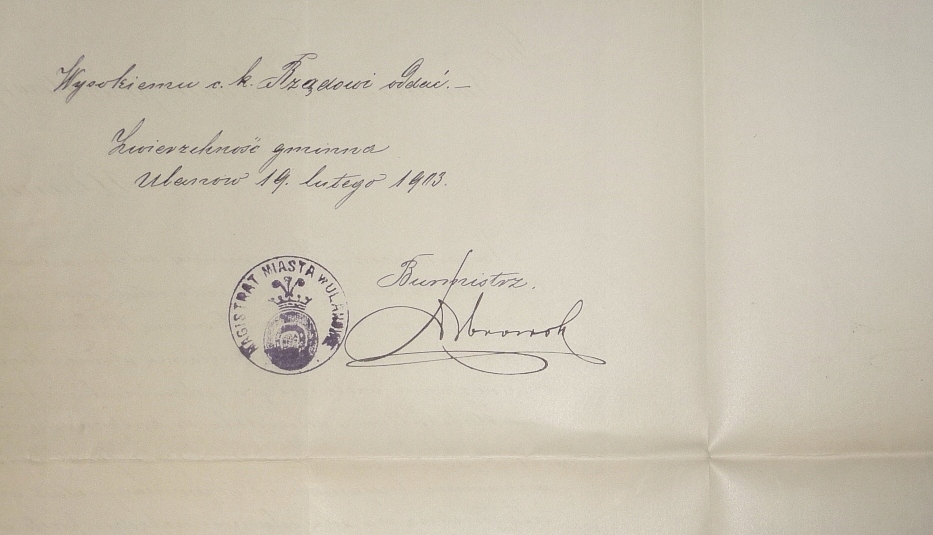 Wysokiemu c. k. Rządowi oddać.—
Zwierzchność gminna
Ulanow 19. lutego 1903.
MAGISTRAT MIASTA W ULANOWIE
Burmistrz.